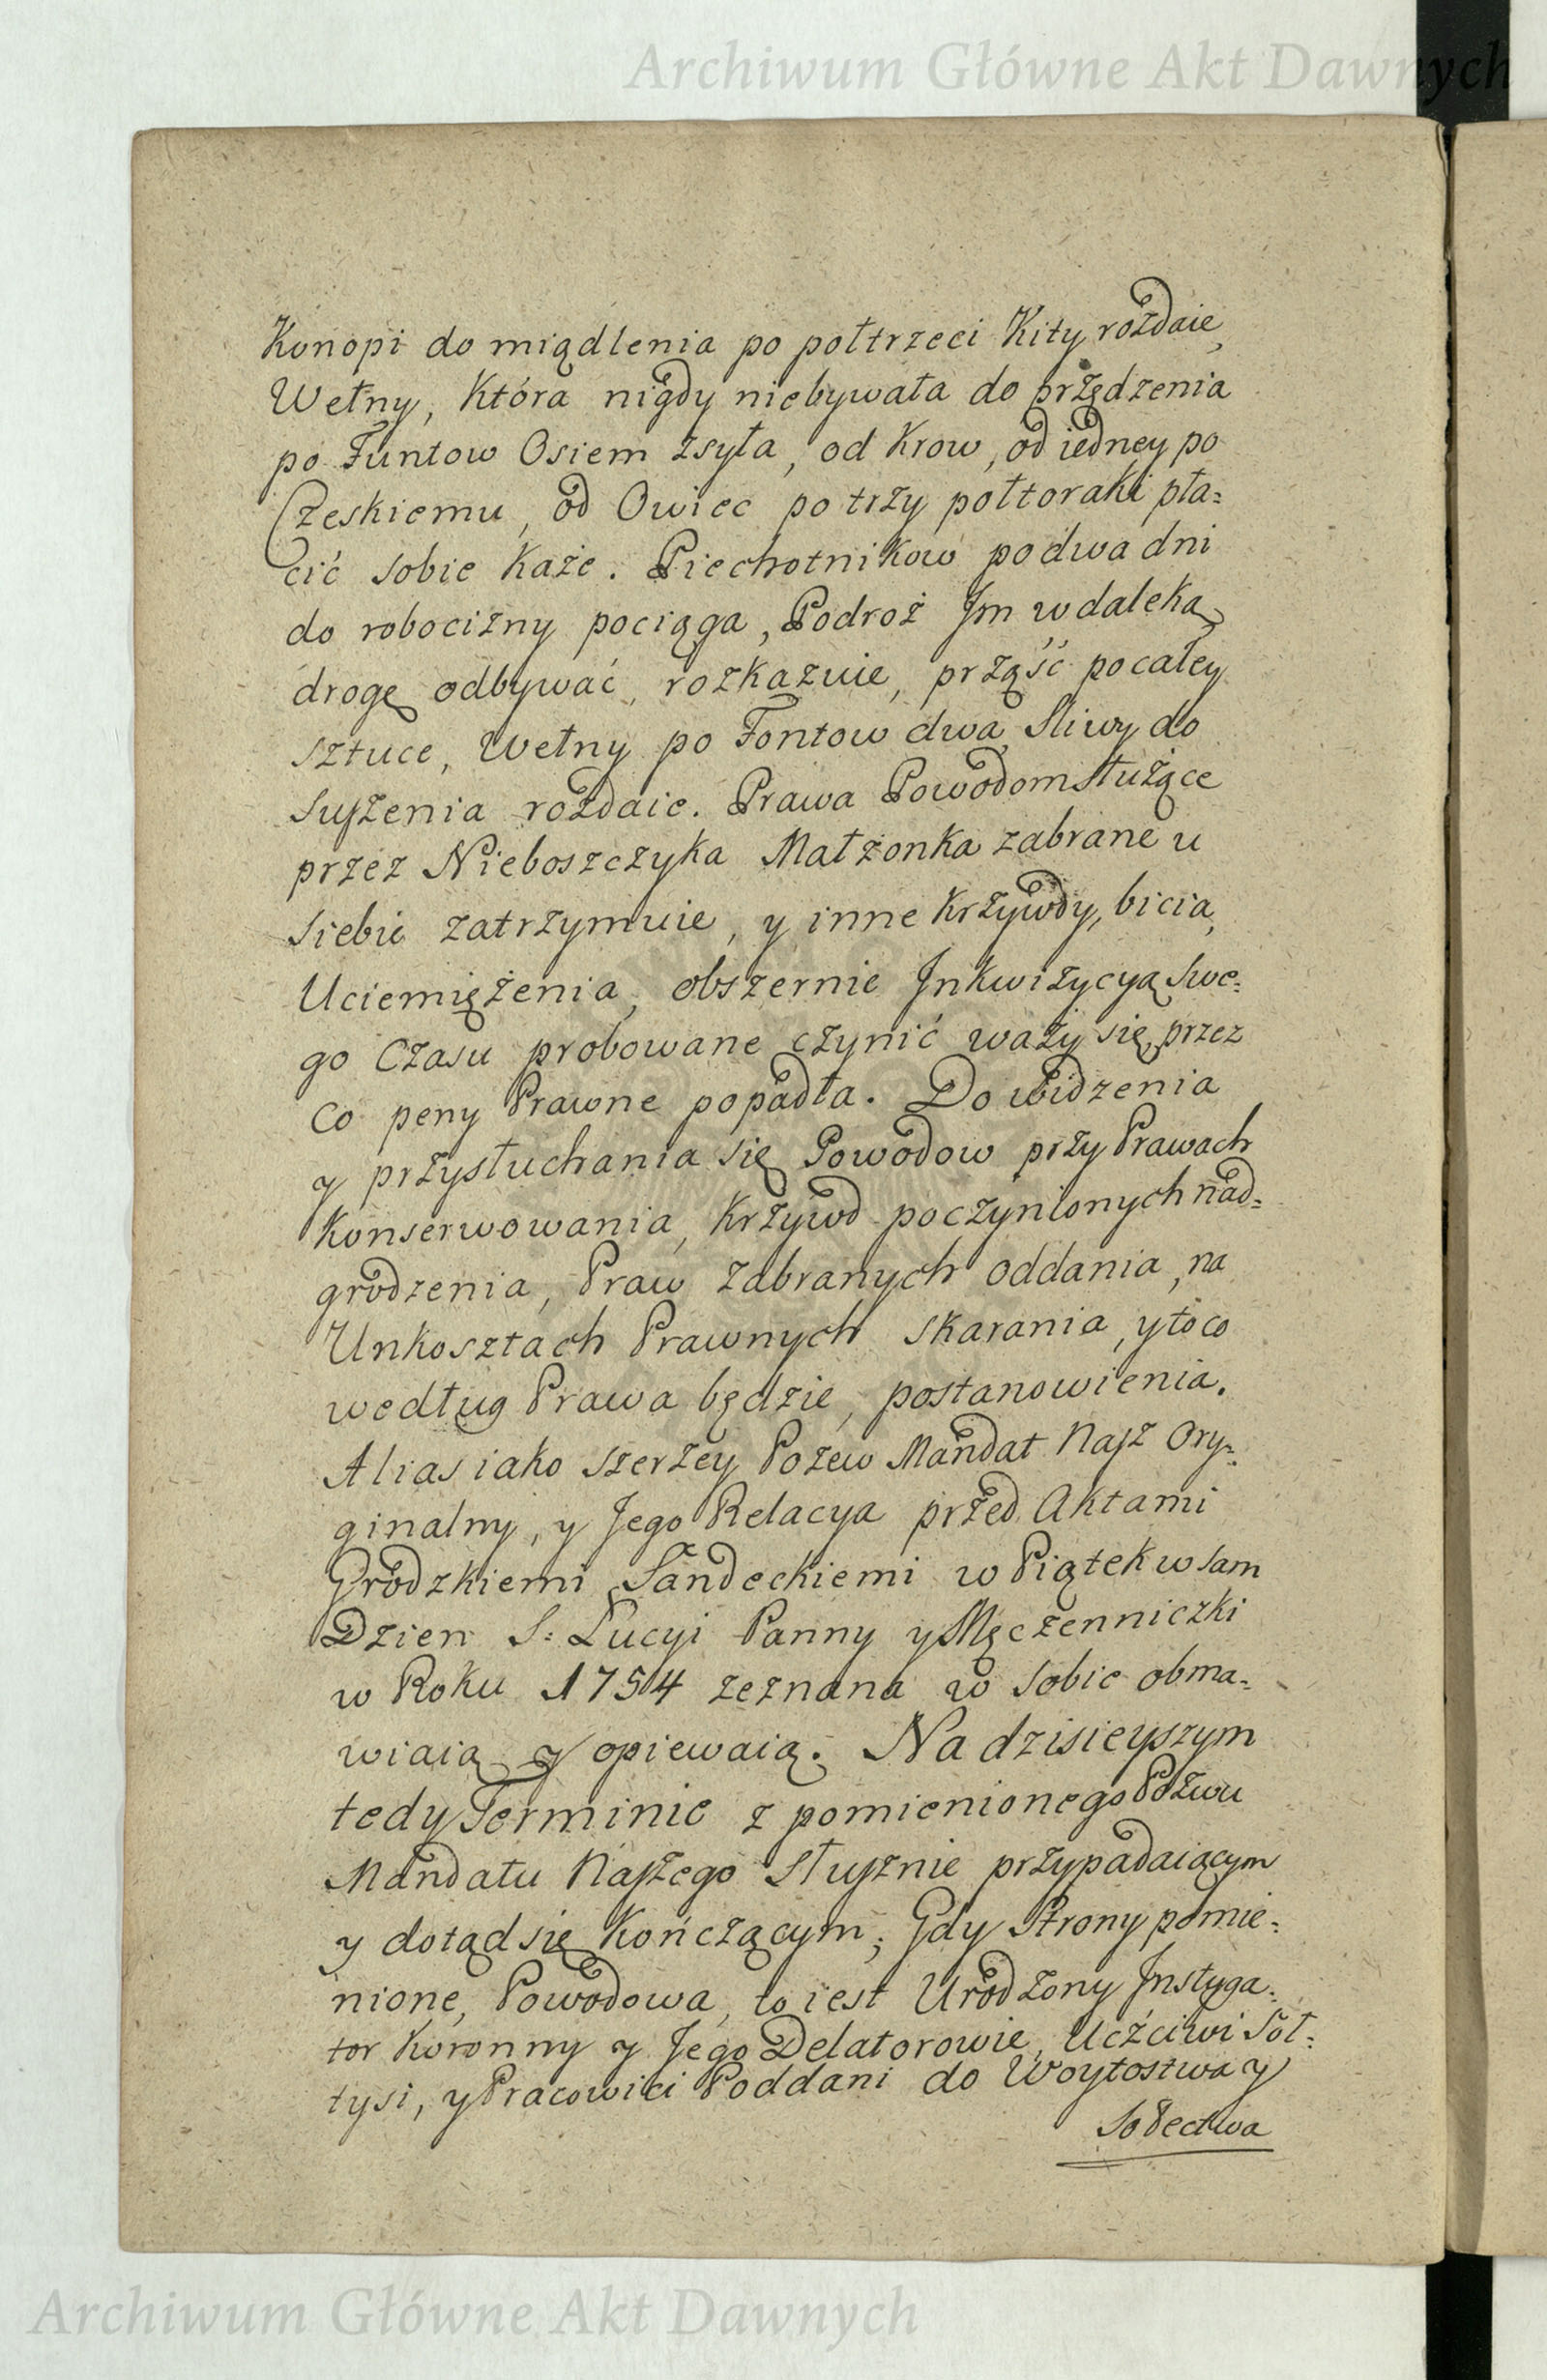 Archiwum Główne Akt Dawnych
Konopi do miądlenia po połtrzeci Kity rozdaie,
Wełny, Która nigdy niebywała do przędzenia
po Funtow Osiem zsyła, od Krow, od iedney po
Czeskiemu, od Owiec po trzy połtoraki pła=
cić sobie Każe. Piechotnikow po dwa dni
do robocizny pociąga, Podroż Jm w daleką
drogę odbywać, rozkazuie, prząść po całey
sztuce, Wełny po Fontow dwa, Sliwy do
Suszenia rozdaie. Prawa Powodom służące
przez Nieboszczyka Małżonka zabrane u
siebie zatrzymuie, y inne Krzywdy, bicia,
Uciemiężenia, obszernie Jnkwizycyą Swe=
go Czasu probowane czynić waży się, przez
co peny Prawne popadła. Do widzenia
y przysłuchania się Powodow przy Prawach
Konserwowania, Krzywd poczynionych nad=
grodzenia, Praw zabranych oddania, na
Unkosztach Prawnych skarania, y to co
według Prawa będzie, postanowienia.
Alias iako szerzey Pozew Mandat Nasz Ory=
ginalny, y Jego Relacya przed Aktami
Grodzkiemi Sandeckiemi w Piątek w sam
Dzien S: Lucyi Panny y Męczenniczki
w Roku 1754 zeznana w sobie obma=
wiaią y opiewaią. Na dzisieyszym
tedy Terminie z pomienionego Pozwu
Mandatu Naszego Słusznie przypadaiącym
y dotąd się Kończącym; Gdy Strony pomie=
nione, Powodowa, to iest Urodzony Jnstyga=
tor Koronny y Jego Delatorowie, Uczciwi Soł=
tysi, y Pracowici Poddani do Woytostwa y
Sołectwa
Archiwum Główne Akt Dawnych